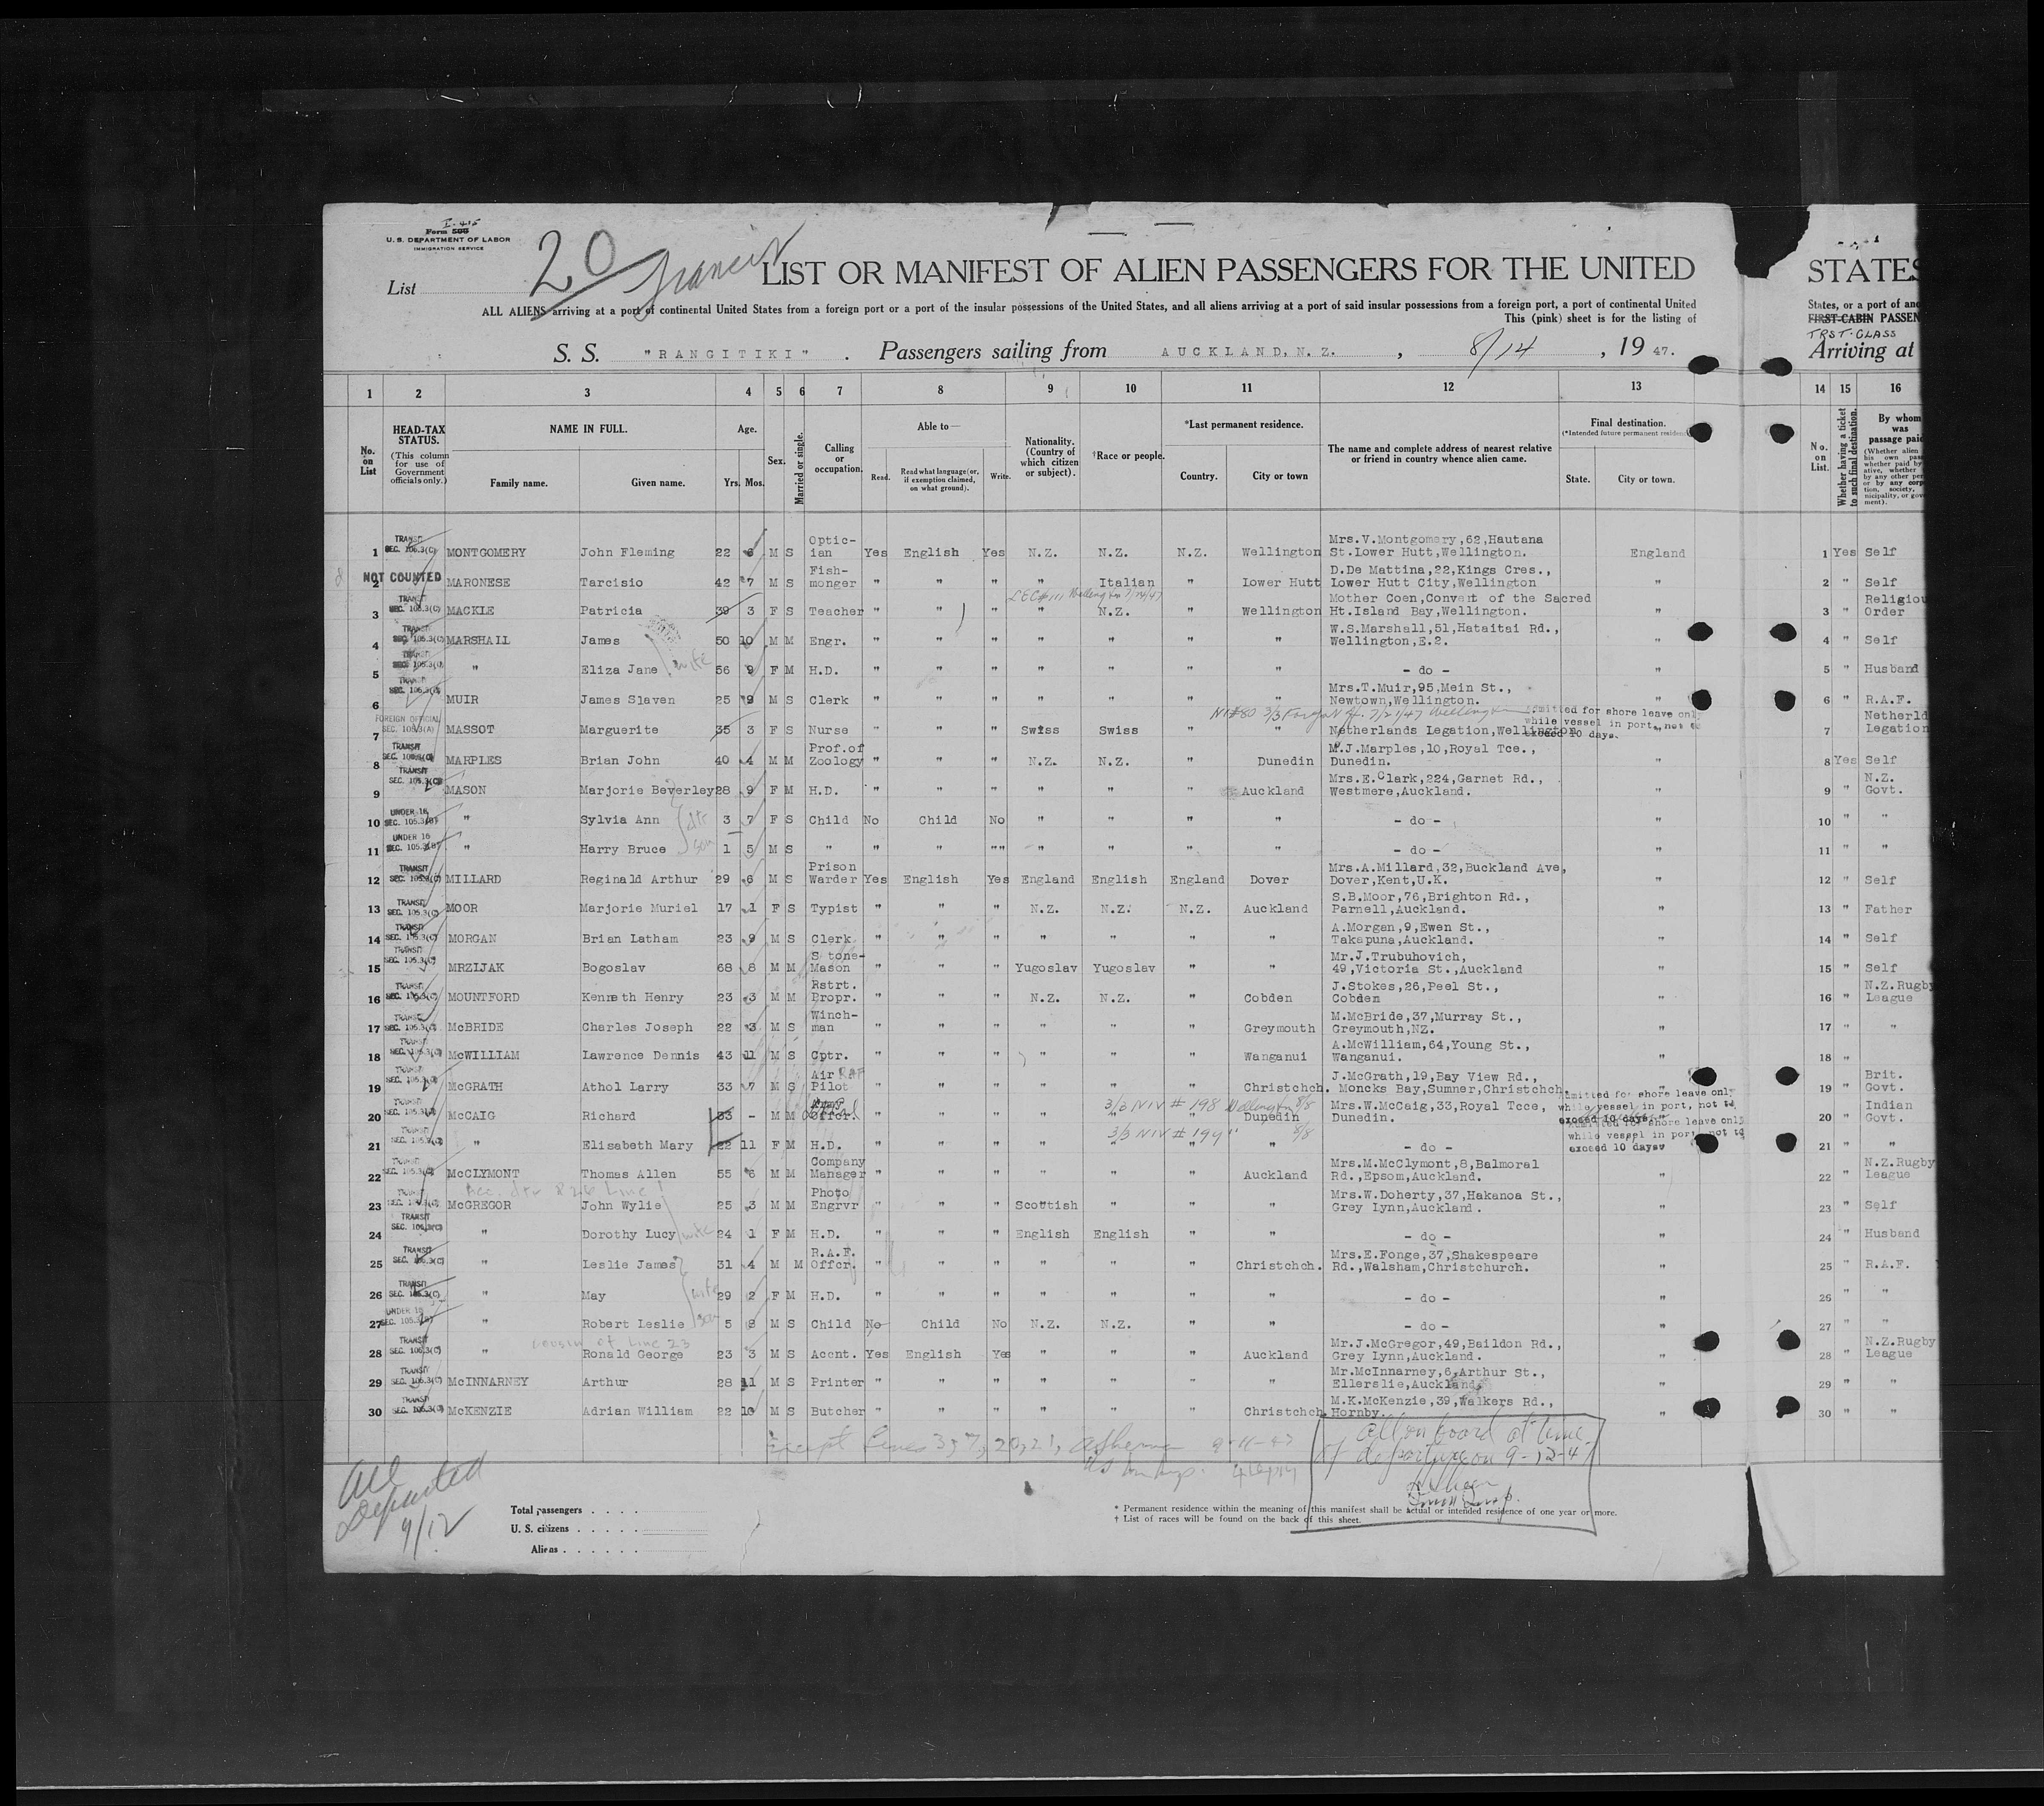 I-415
Form 500
U. S. DEPARTMENT OF LABOR
IMMIGRATION SERVICE
List 20
LIST OR MANIFEST OF ALIEN PASSENGERS FOR THE UNITED STATES
ALL ALIENS arriving at a port of continental United States from a foreign port or a port of the insular possessions of the United States, and all aliens arriving at a port of said insular possessions from a foreign port, a port of continental United States, or a port of
This (pink) sheet is for the listing of FIRST-CABIN PASSEN
S. S. "RANGITIKI". Passengers sailing from AUCKLAND, N. Z. , 8/14 , 19 47. Arriving at
1 2 3 4 5 6 7 8 9 10 11 12 13 14 15 16
No. on List
HEAD-TAX STATUS. (This column for use of Government officials only.)
NAME IN FULL. Family name. Given name.
Age. Yrs. Mos.
Sex.
Married or single.
Calling or occupation.
Able to— Read. Read what language (or, if exemption claimed, on what ground). Write.
Nationality. (Country of which citizen or subject).
†Race or people.
*Last permanent residence. Country. City or town
The name and complete address of nearest relative or friend in country whence alien came.
Final destination. (*Intended future permanent residence) State. City or town.
No. on List.
Whether having a ticket to such final destination.
By whom was passage paid
1 TRANSIT SEC. 105.3(C) MONTGOMERY John Fleming 22 6 M S Optic-ian Yes English Yes N.Z. N.Z. N.Z. Wellington Mrs.V.Montgomary,62,Hautana St.Lower Hutt,Wellington. England 1 Yes Self
2 NOT COUNTED MARONESE Tarcisio 42 7 M S Fish-monger " " " " Italian " Lower Hutt D.De Mattina,22,Kings Cres., Lower Hutt City,Wellington " 2 " Self
3 TRANSIT SEC. 105.3(C) MACKLE Patricia 39 3 F S Teacher " " " N.Z. " Wellington Mother Coen,Convent of the Sacred Ht.Island Bay,Wellington. " 3 " Religiou Order
4 TRANSIT SEC. 105.3(C) MARSHALL James 50 10 M M Engr. " " " " " " " W.S.Marshall,51,Hataitai Rd., Wellington,E.2. " 4 " Self
5 TRANSIT SEC. 105.3(C) " Eliza Jane wife 56 9 F M H.D. " " " " " " " - do - " 5 " Husband
6 TRANSIT SEC. 105.3(C) MUIR James Slaven 25 9 M S Clerk " " " " " " " Mrs.T.Muir,95,Mein St., Newtown,Wellington. " 6 " R.A.F.
7 FOREIGN OFFICIAL SEC. 105.3(A) MASSOT Marguerite 35 3 F S Nurse " " " Swiss Swiss " " Netherlands Legation,Wellington Admitted for shore leave only while vessel in port, not to exceed 10 days. 7 Netherld Legation
8 TRANSIT SEC. 105.3(C) MARPLES Brian John 40 4 M M Prof.of Zoology " " " N.Z. N.Z. " Dunedin M.J.Marples,10,Royal Tce., Dunedin. " 8 Yes Self
9 TRANSIT SEC. 105.3(C) MASON Marjorie Beverley 28 9 F M H.D. " " " " " " Auckland Mrs.E.Clark,224,Garnet Rd., Westmere,Auckland. " 9 " N.Z. Govt.
10 UNDER 16 SEC. 105.3(B) " Sylvia Ann 3 7 F S Child No Child No " " " " - do - " 10 " "
11 UNDER 16 SEC. 105.3(B) " Harry Bruce son 1 5 M S " " " "" " " " " - do - " 11 " "
12 TRANSIT SEC. 105.3(C) MILLARD Reginald Arthur 29 6 M S Prison Warder Yes English Yes England English England Dover Mrs.A.Millard,32,Buckland Ave, Dover,Kent,U.K. " 12 " Self
13 TRANSIT SEC. 105.3(C) MOOR Marjorie Muriel 17 1 F S Typist " " " N.Z. N.Z. N.Z. Auckland S.B.Moor,76,Brighton Rd., Parnell,Auckland. " 13 " Father
14 TRANSIT SEC. 105.3(C) MORGAN Brian Latham 23 9 M S Clerk " " " " " " " A.Morgan,9,Ewen St., Takapuna,Auckland. " 14 " Self
15 TRANSIT SEC. 105.3(C) MRZIJAK Bogoslav 68 8 M M Stone-Mason " " " Yugoslav Yugoslav " " Mr.J.Trubuhovich, 49,Victoria St.,Auckland " 15 " Self
16 TRANSIT SEC. 105.3(C) MOUNTFORD Kenneth Henry 23 3 M M Rstrt. Propr. " " " N.Z. N.Z. " Cobden J.Stokes,26,Peel St., Cobden " 16 " N.Z.Rugby League
17 TRANSIT SEC. 105.3(C) McBRIDE Charles Joseph 22 3 M S Winch-man " " " " " " Greymouth M.McBride,37,Murray St., Greymouth,NZ. " 17 " "
18 TRANSIT SEC. 105.3(C) McWILLIAM Lawrence Dennis 43 11 M S Cptr. " " " " " " Wanganui A.McWilliam,64,Young St., Wanganui. " 18 "
19 TRANSIT SEC. 105.3(C) McGRATH Athol Larry 33 7 M S Air Pilot RAF " " " " " " Christchch. J.McGrath,19,Bay View Rd., Moncks Bay,Sumner,Christchch. " 19 " Brit. Govt.
20 TRANSIT SEC. 105.3(C) McCAIG Richard 33 - M M Offcr. " " " " 3/3 NIV # 198 Wellington 8/8 " " Dunedin Mrs.W.McCaig,33,Royal Tce, Dunedin. Admitted for shore leave only while vessel in port, not to exceed 10 days. 20 " Indian Govt.
21 TRANSIT SEC. 105.3(C) " Elisabeth Mary 22 11 F M H.D. " " " " 3/3 NIV # 199 " 8/8 " " " - do - Admitted for shore leave only while vessel in port, not to exceed 10 days 21 " "
22 TRANSIT SEC. 105.3(C) McCLYMONT Thomas Allen 55 6 M M Company Manager " " " " " " Auckland Mrs.M.McClymont,8,Balmoral Rd.,Epsom,Auckland. " 22 " N.Z.Rugby League
23 TRANSIT SEC. 105.3(C) McGREGOR John Wylie 25 3 M M Photo Engrvr " " " Scottish " " " Mrs.W.Doherty,37,Hakanoa St., Grey Lynn,Auckland. " 23 " Self
24 TRANSIT SEC. 105.3(C) " Dorothy Lucy wife 24 1 F M H.D. " " " English English " " - do - " 24 " Husband
25 TRANSIT SEC. 105.3(C) " Leslie James 31 4 M M R.A.F. Offcr. " " " " " " Christchch. Mrs.E.Fonge,37,Shakespeare Rd.,Walsham,Christchurch. " 25 " R.A.F.
26 TRANSIT SEC. 105.3(C) " May wife 29 2 F M H.D. " " " " " " " - do - " 26 " "
27 UNDER 16 SEC. 105.3(B) " Robert Leslie son 5 8 M S Child No Child No N.Z. N.Z. " " - do - " 27 " "
cousin of Line 23
28 TRANSIT SEC. 105.3(C) " Ronald George 23 3 M S Accnt. Yes English Yes " " " Auckland Mr.J.McGregor,49,Baildon Rd., Grey Lynn,Auckland. " 28 " N.Z.Rugby League
29 TRANSIT SEC. 105.3(C) McINNARNEY Arthur 28 11 M S Printer " " " " " " " Mr.McInnarney,6,Arthur St., Ellerslie,Auckland. " 29 " "
30 TRANSIT SEC. 105.3(C) McKENZIE Adrian William 22 10 M S Butcher " " " " " " Christchch. M.K.McKenzie,39,Walkers Rd., Hornby. " 30 " "
Except lines 3, 7, 20, 21, 9-11-47
All on board at time
of departure on 9-12-47
All Departed 9/12
Total passengers
U. S. citizens
Aliens
* Permanent residence within the meaning of this manifest shall be actual or intended residence of one year or more.
† List of races will be found on the back of this sheet.